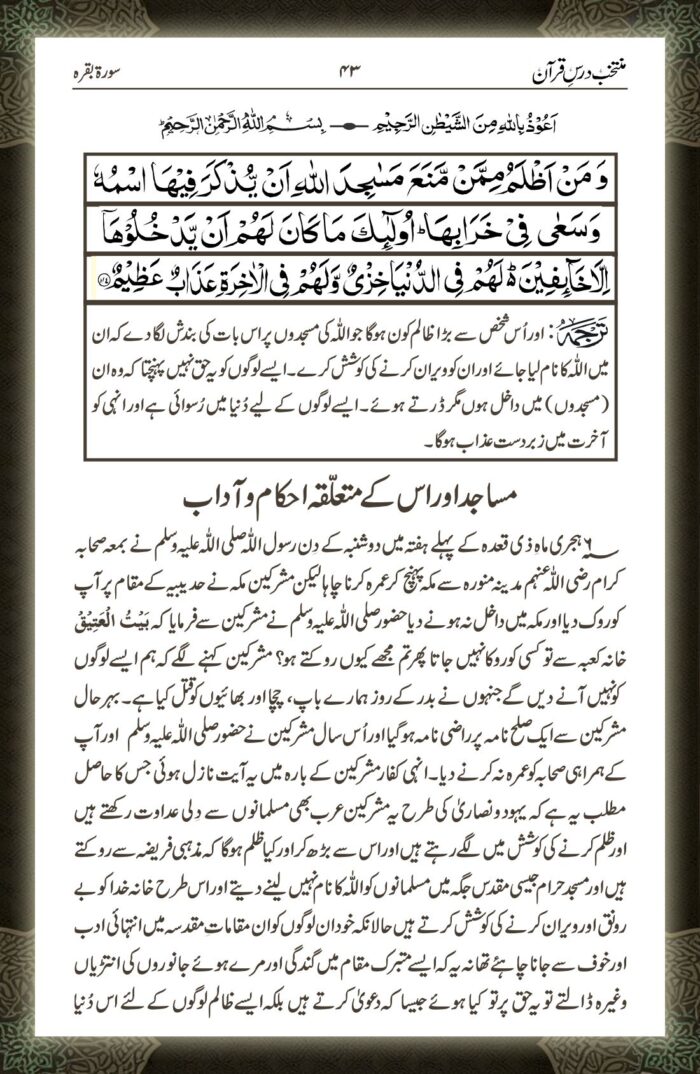 منتخب درسِ قرآن ۴۳ سورۃ بقرہ
اَعُوْذُ بِاللّٰہِ مِنَ الشَّیْطٰنِ الرَّجِیْمِ — بِسْمِ اللّٰہِ الرَّحْمٰنِ الرَّحِیْمِ
وَ مَنْ اَظْلَمُ مِمَّنْ مَّنَعَ مَسٰجِدَ اللّٰهِ اَنْ یُّذْكَرَ فِیْهَا اسْمُهٗ
وَ سَعٰی فِیْ خَرَابِهَا ؕ اُولٰٓىِٕكَ مَا كَانَ لَهُمْ اَنْ یَّدْخُلُوْهَاۤ
اِلَّا خَآىِٕفِیْنَ ؕ۬ لَهُمْ فِی الدُّنْیَا خِزْیٌ وَّ لَهُمْ فِی الْاٰخِرَةِ عَذَابٌ عَظِیْمٌ ﴿۱۱۴﴾
ترجمہ: اور اُس شخص سے بڑا ظالم کون ہوگا جو اللہ کی مسجدوں پر اس بات کی بندش لگا دے کہ ان
میں اللہ کا نام لیا جائے اور ان کو ویران کرنے کی کوشش کرے۔ ایسے لوگوں کو یہ حق نہیں پہنچتا کہ وہ ان
(مسجدوں) میں داخل ہوں مگر ڈرتے ہوئے۔ ایسے لوگوں کے لیے دُنیا میں رُسوائی ہے اور انہی کو
آخرت میں زبردست عذاب ہوگا۔
مساجد اور اس کے متعلّقہ احکام و آداب
۶ ہجری ماہِ ذی قعدہ کے پہلے ہفتہ میں دوشنبہ کے دن رسول اللہ صلی اللہ علیہ وسلم نے بمعہ صحابہ
کرام رضی اللہ عنہم مدینہ منورہ سے مکہ پہنچ کر عمرہ کرنا چاہا لیکن مشرکین مکہ نے حدیبیہ کے مقام پر آپ
کو روک دیا اور مکہ میں داخل نہ ہونے دیا حضور صلی اللہ علیہ وسلم نے مشرکین سے فرمایا کہ بَیْتُ الْعَتِیْقْ
خانہ کعبہ سے تو کسی کو روکا نہیں جاتا پھر تم مجھے کیوں روکتے ہو؟ مشرکین کہنے لگے کہ ہم ایسے لوگوں
کو نہیں آنے دیں گے جنہوں نے بدر کے روز ہمارے باپ، چچا اور بھائیوں کو قتل کیا ہے۔ بہرحال
مشرکین سے ایک صلح نامہ پر راضی نامہ ہوگیا اور اُس سال مشرکین نے حضور صلی اللہ علیہ وسلم اور آپ
کے ہمراہی صحابہ کو عمرہ نہ کرنے دیا۔ انہی کفار مشرکین کے بارہ میں یہ آیت نازل ہوئی جس کا حاصل
مطلب یہ ہے کہ یہود و نصاریٰ کی طرح یہ مشرکین عرب بھی مسلمانوں سے دلی عداوت رکھتے ہیں
اور ظلم کرنے کی کوشش میں لگے رہتے ہیں اور اس سے بڑھ کر اور کیا ظلم ہوگا کہ مذہبی فریضہ سے روکتے
ہیں اور مسجد حرام جیسی مقدس جگہ میں مسلمانوں کو اللہ کا نام نہیں لینے دیتے اور اس طرح خانہ خدا کو بے
رونق اور ویران کرنے کی کوشش کرتے ہیں حالانکہ خود ان لوگوں کو ان مقامات مقدسہ میں انتہائی ادب
اور خوف سے جانا چاہئے تھا نہ یہ کہ ایسے متبرک مقام میں گندگی اور مرے ہوئے جانوروں کی انتڑیاں
وغیرہ ڈالتے تو یہ حق پر تو کیا ہوئے جیسا کہ دعویٰ کرتے ہیں بلکہ ایسے ظالم لوگوں کے لئے اس دُنیا